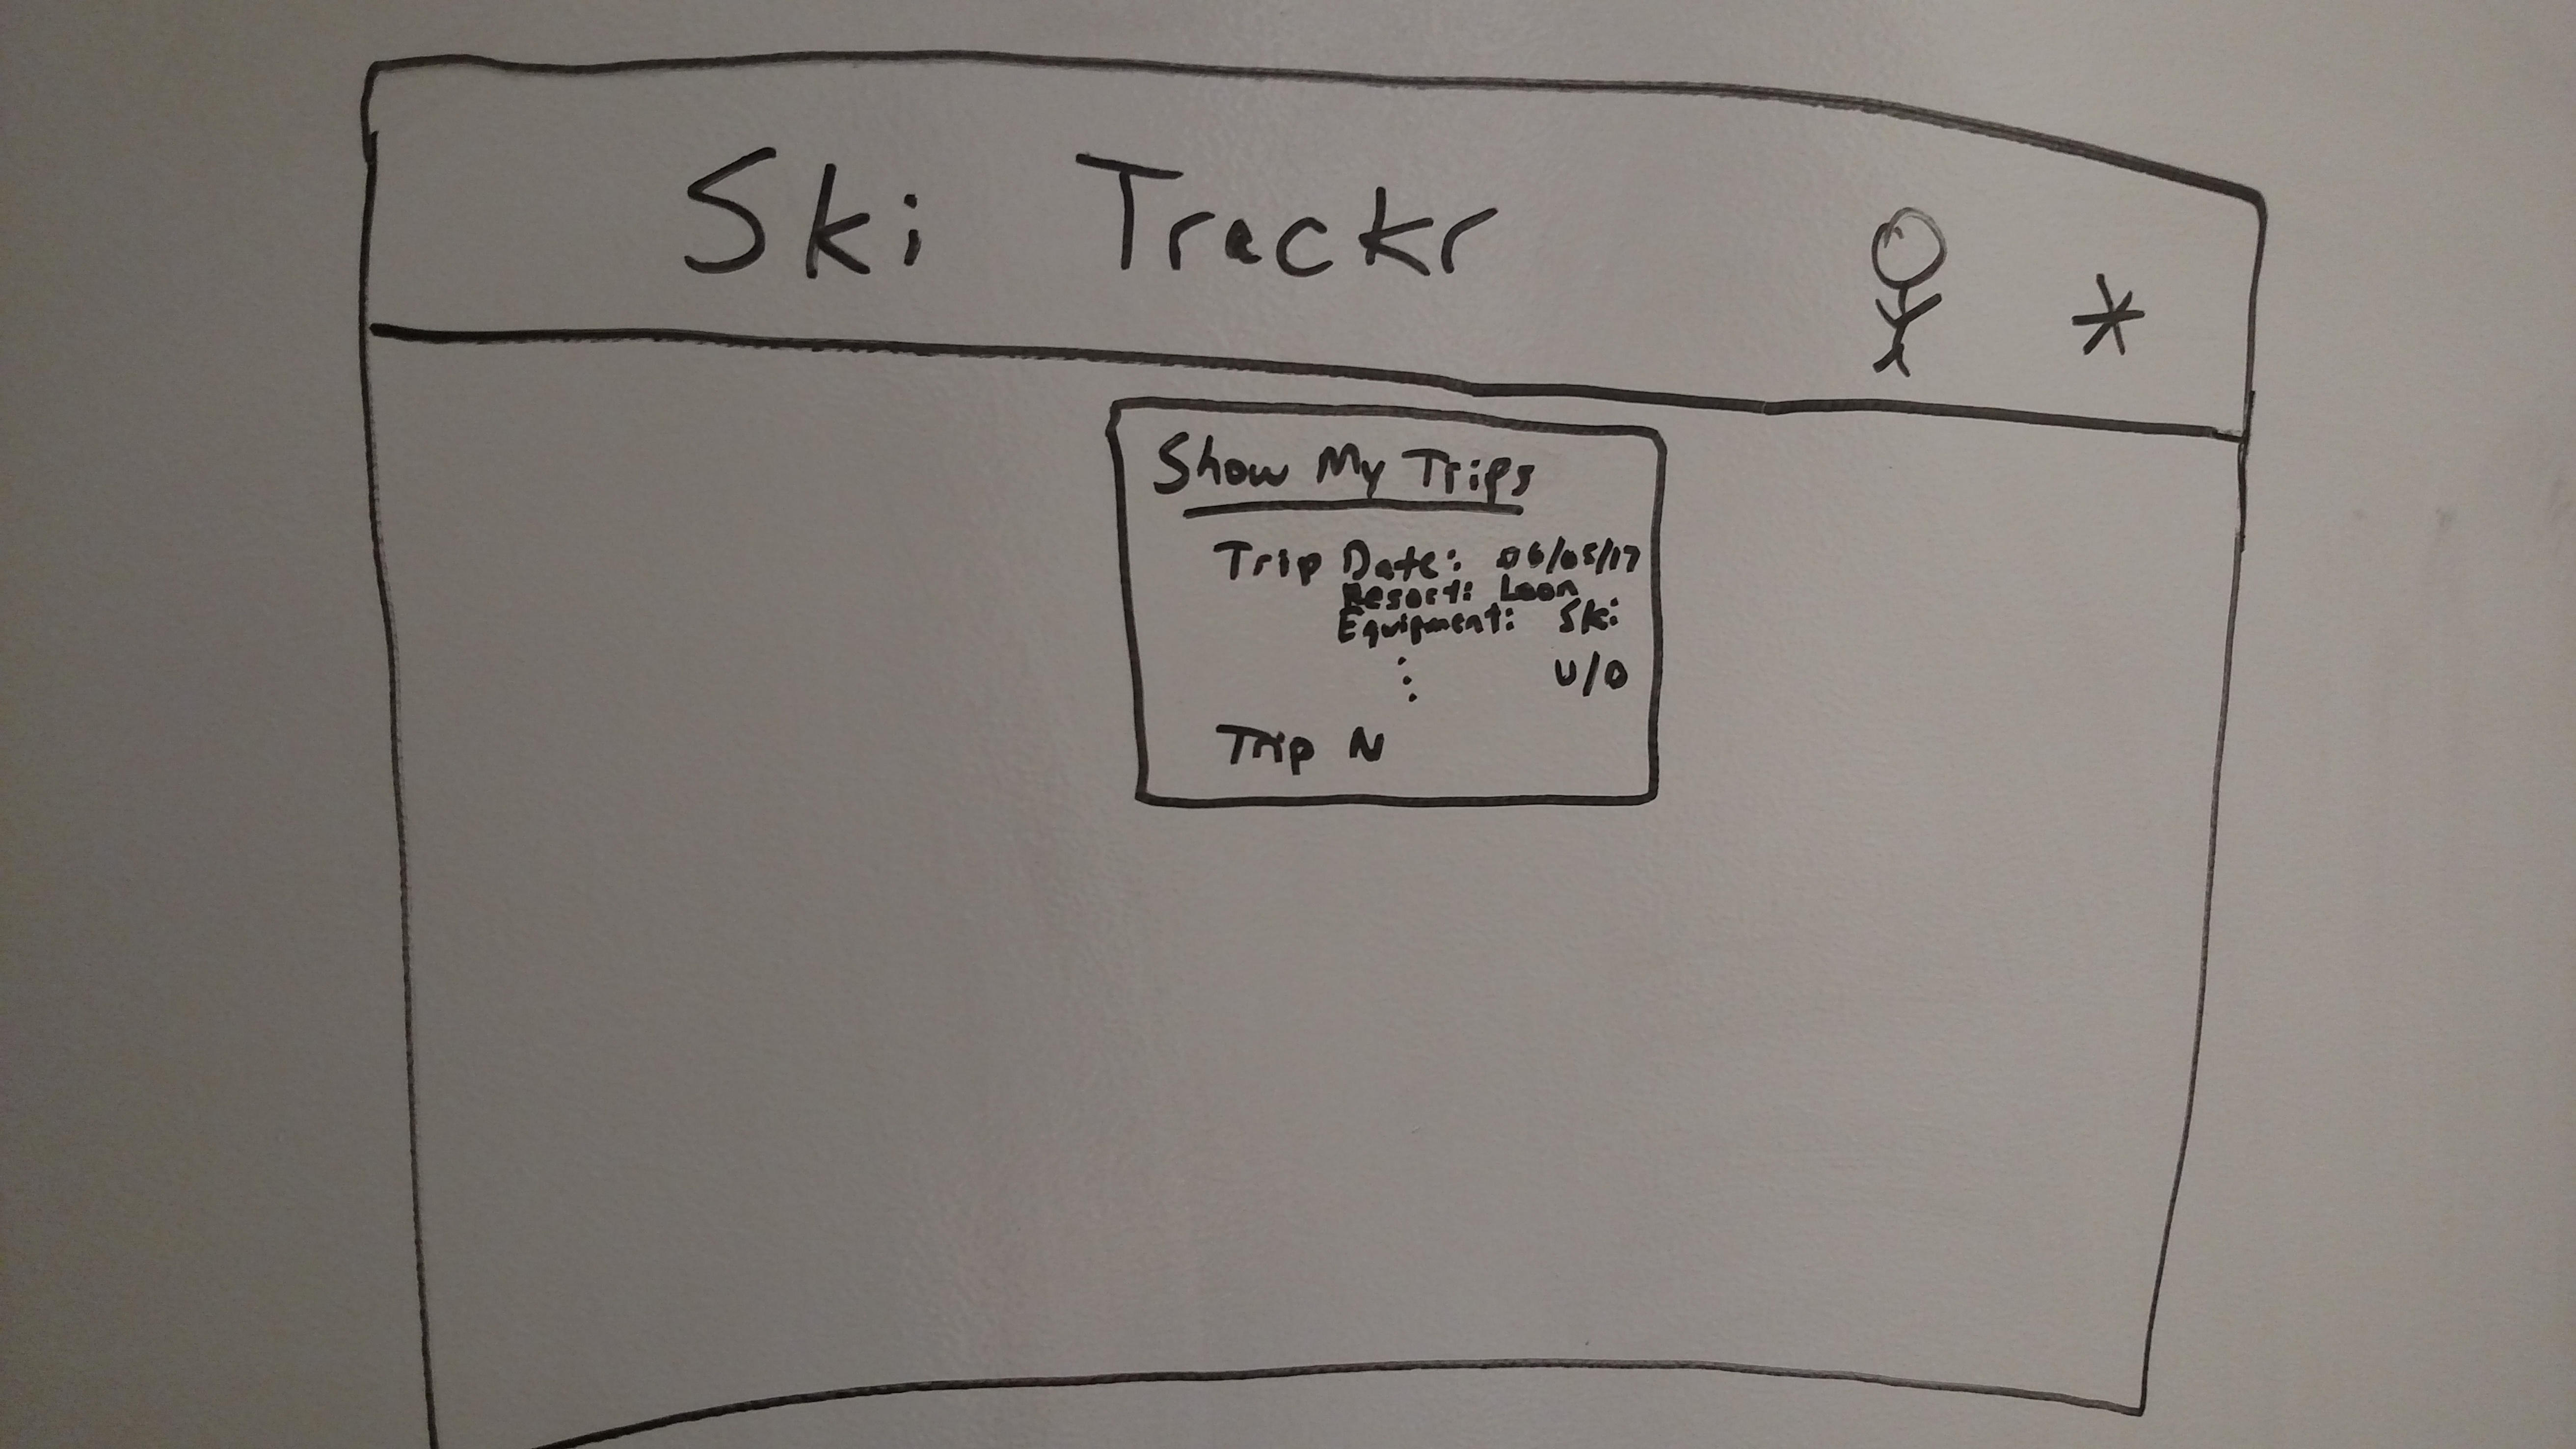 Ski Trackr
*
Show My Trips
Trip Date: 06/05/17
Resort: Loon
Equipment: Ski
U/D
Trip N